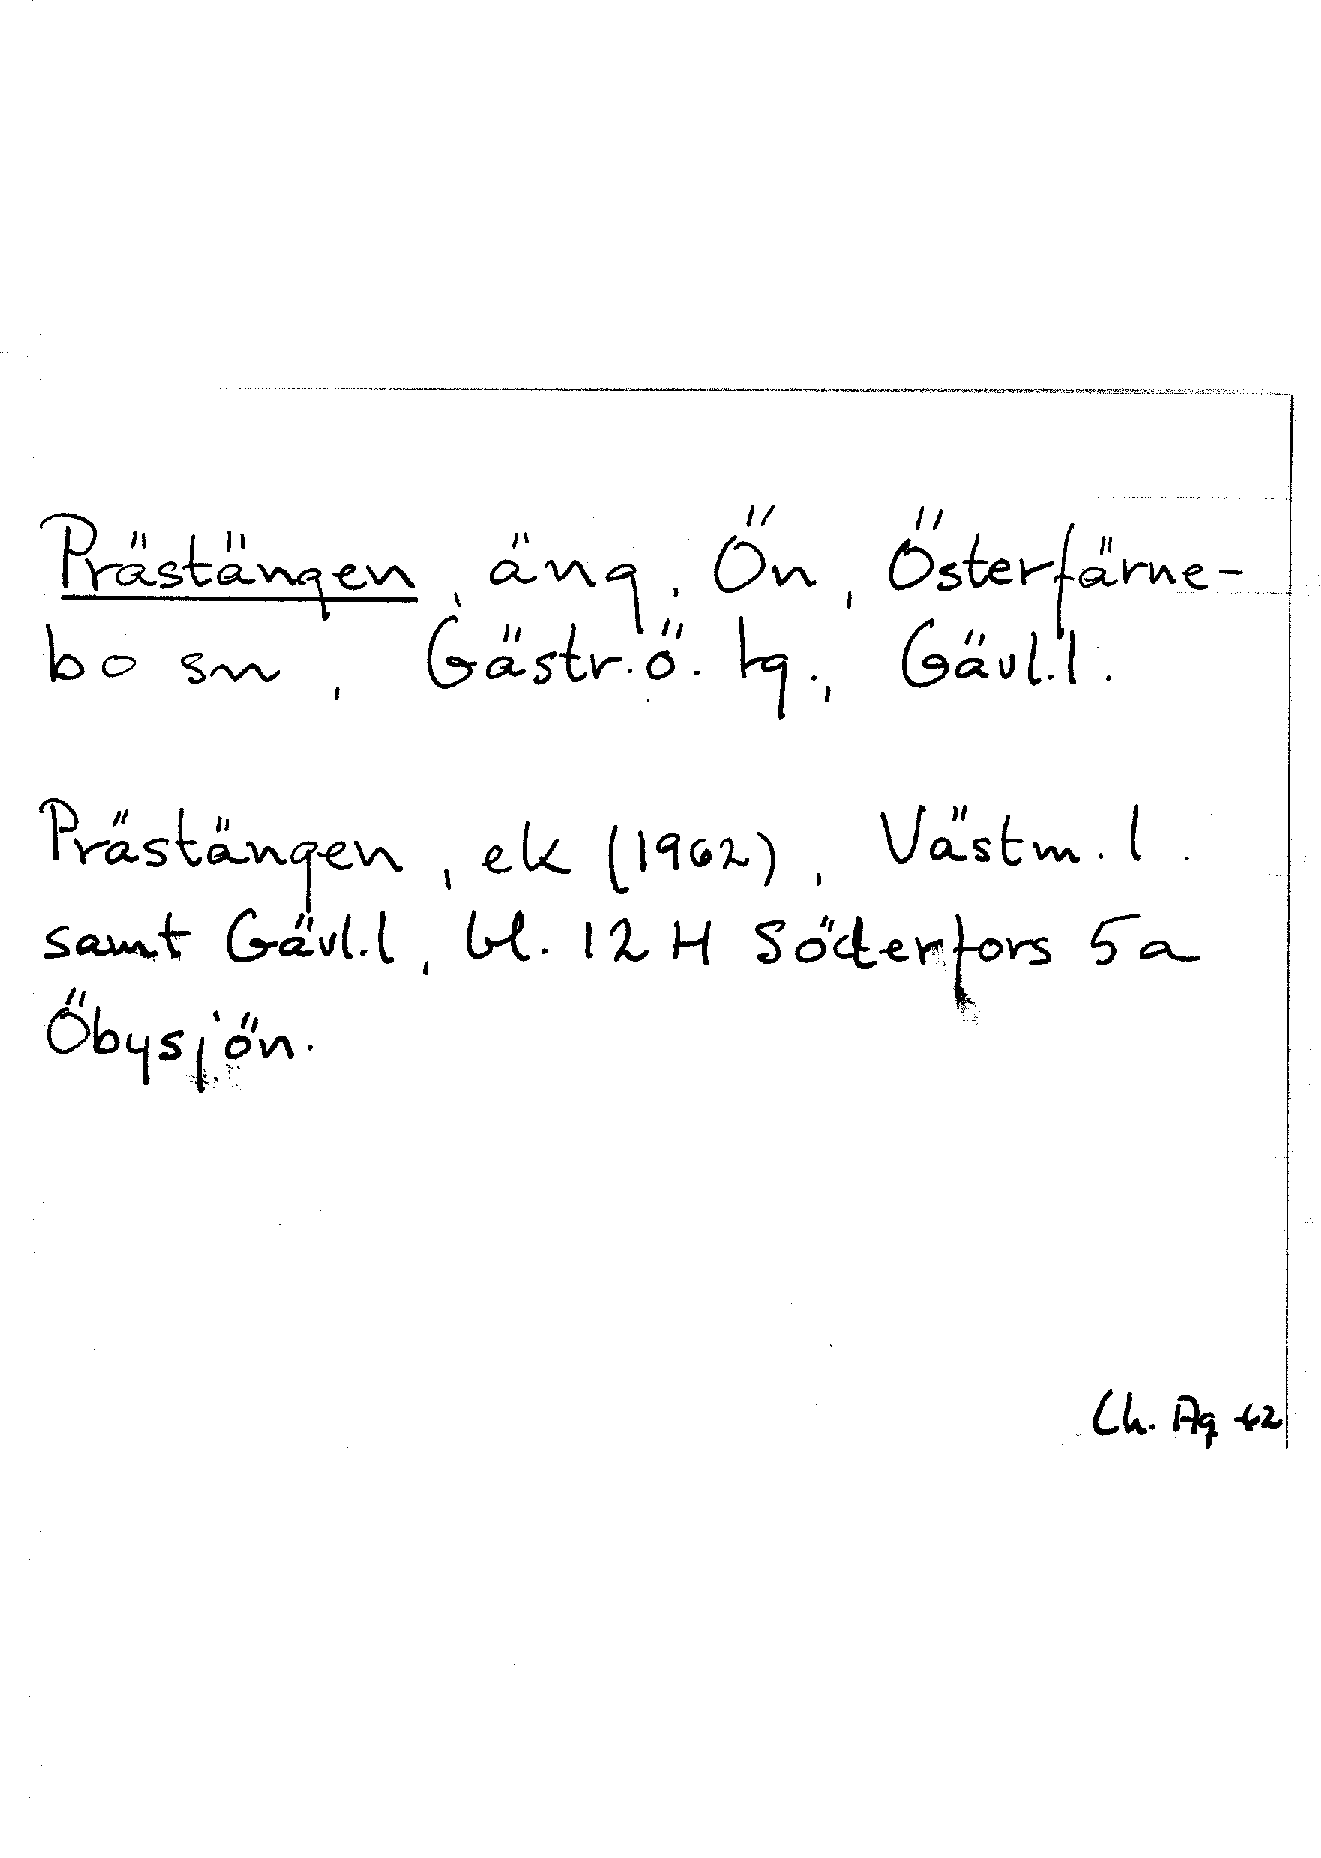 Prästängen, äng, Ön, Österfärne-
bo sn, Gästr.ö. tg., Gävl.l.
Prästängen, ek (1962), Västm.l.
samt Gävl.l, bl. 12 H Söderfors 5a
Öbysjön.
Ch. Ag 62